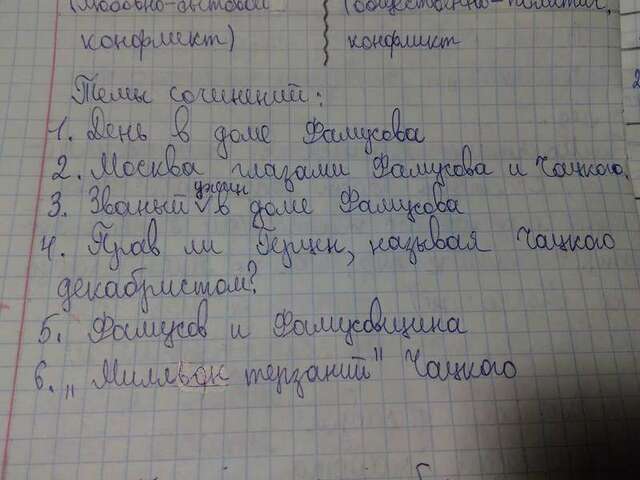 (любовно-бытовой
конфликт)
(общественно-политич.
конфликт
Темы сочинений:
1. День в доме Фамусова
2. Москва глазами Фамусова и Чацкого.
3. Званый ужин в доме Фамусова
4. Прав ли Герцен, называя Чацкого
декабристом?
5. Фамусов и Фамусовщина
6. „Миллион терзаний" Чацкого